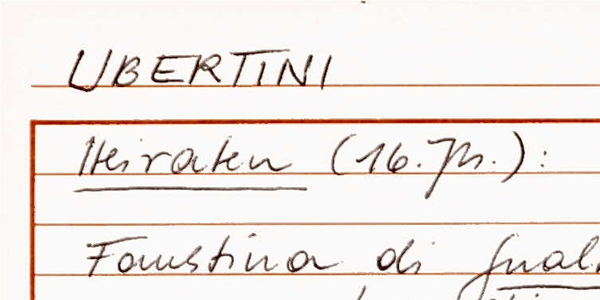 UBERTINI
Heiraten (16. Jh.):
Faustina di